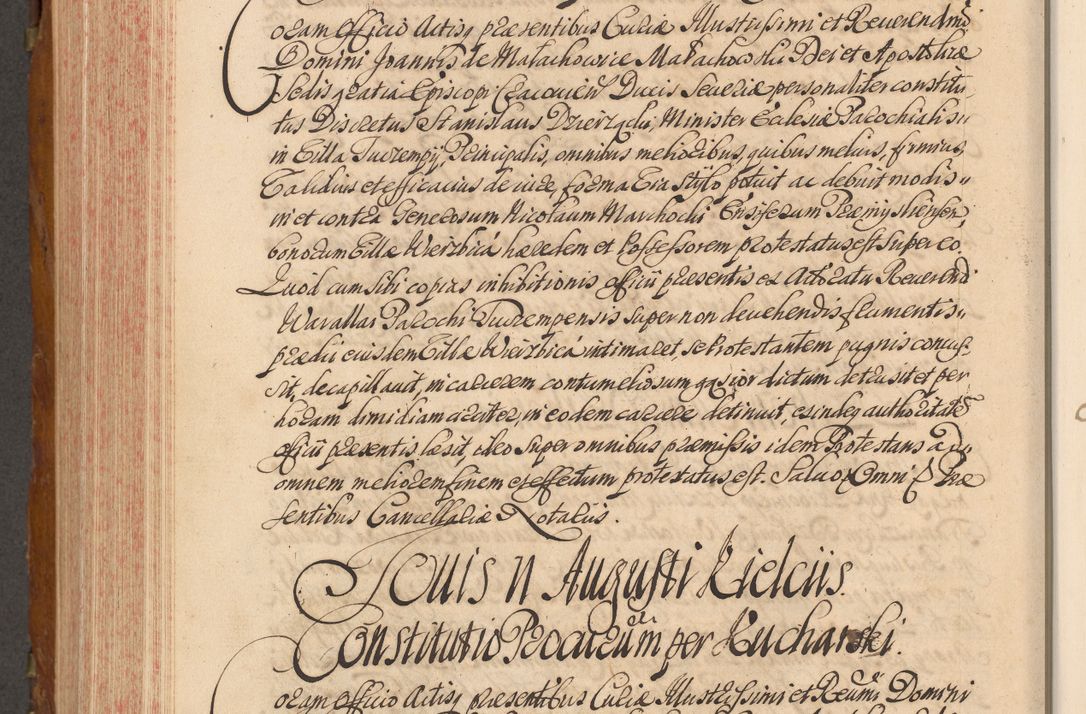 Coram Officio Actisq praesentibus Curiae Illustrissimi et Reverendmi
Domini Joannis de Malachowice Małachowski Dei et Apostolicae
Sedis gratia Episcopi Cracovien Ducis Severiae personaliter constitu,
tus Discretus Stanislaus Dzierzgda, Minister Ecclesiae Parochialis
in Villa Tuczempy, Principalis, omnibus melioribus, quibus melius, firmius,
Validius et efficacius de iure, forma Via stylo potuit ac debuit modis
in et contra Generosum Nicolaum Marchocki Ensiferum Praemysliensem,
bonorum Villae Wierzbica haeredem et Possessorem protestatus est super eo
Quod cum sibi copias inhibitionis officii praesentis ex Actoratu Reverendi
Parochi Tuczempensis super non devehendis frumentis
praedii eiusdem Villae Wierzbica intimaret, se Protestantem pugnis concus,
sit, decapillavit, in carcerem contumeliosum dictum detrusit et per
horam dimidiam circiter, in eodem carcere detinuit, exindeq authoritate
officii praesentis laesit, ideo super omnibus praemissis idem Protestans ad
omnem meliorem finem et effectum protestatus est. Salvo Omni Prae
sentibus Cancellariae Notariis.
Jovis 11 Augusti Kielciis.
Constitutio Procurum per Kucharski.
Coram Officio Actisq praesentibus Curiae Illustrissimi et Reumi Domini